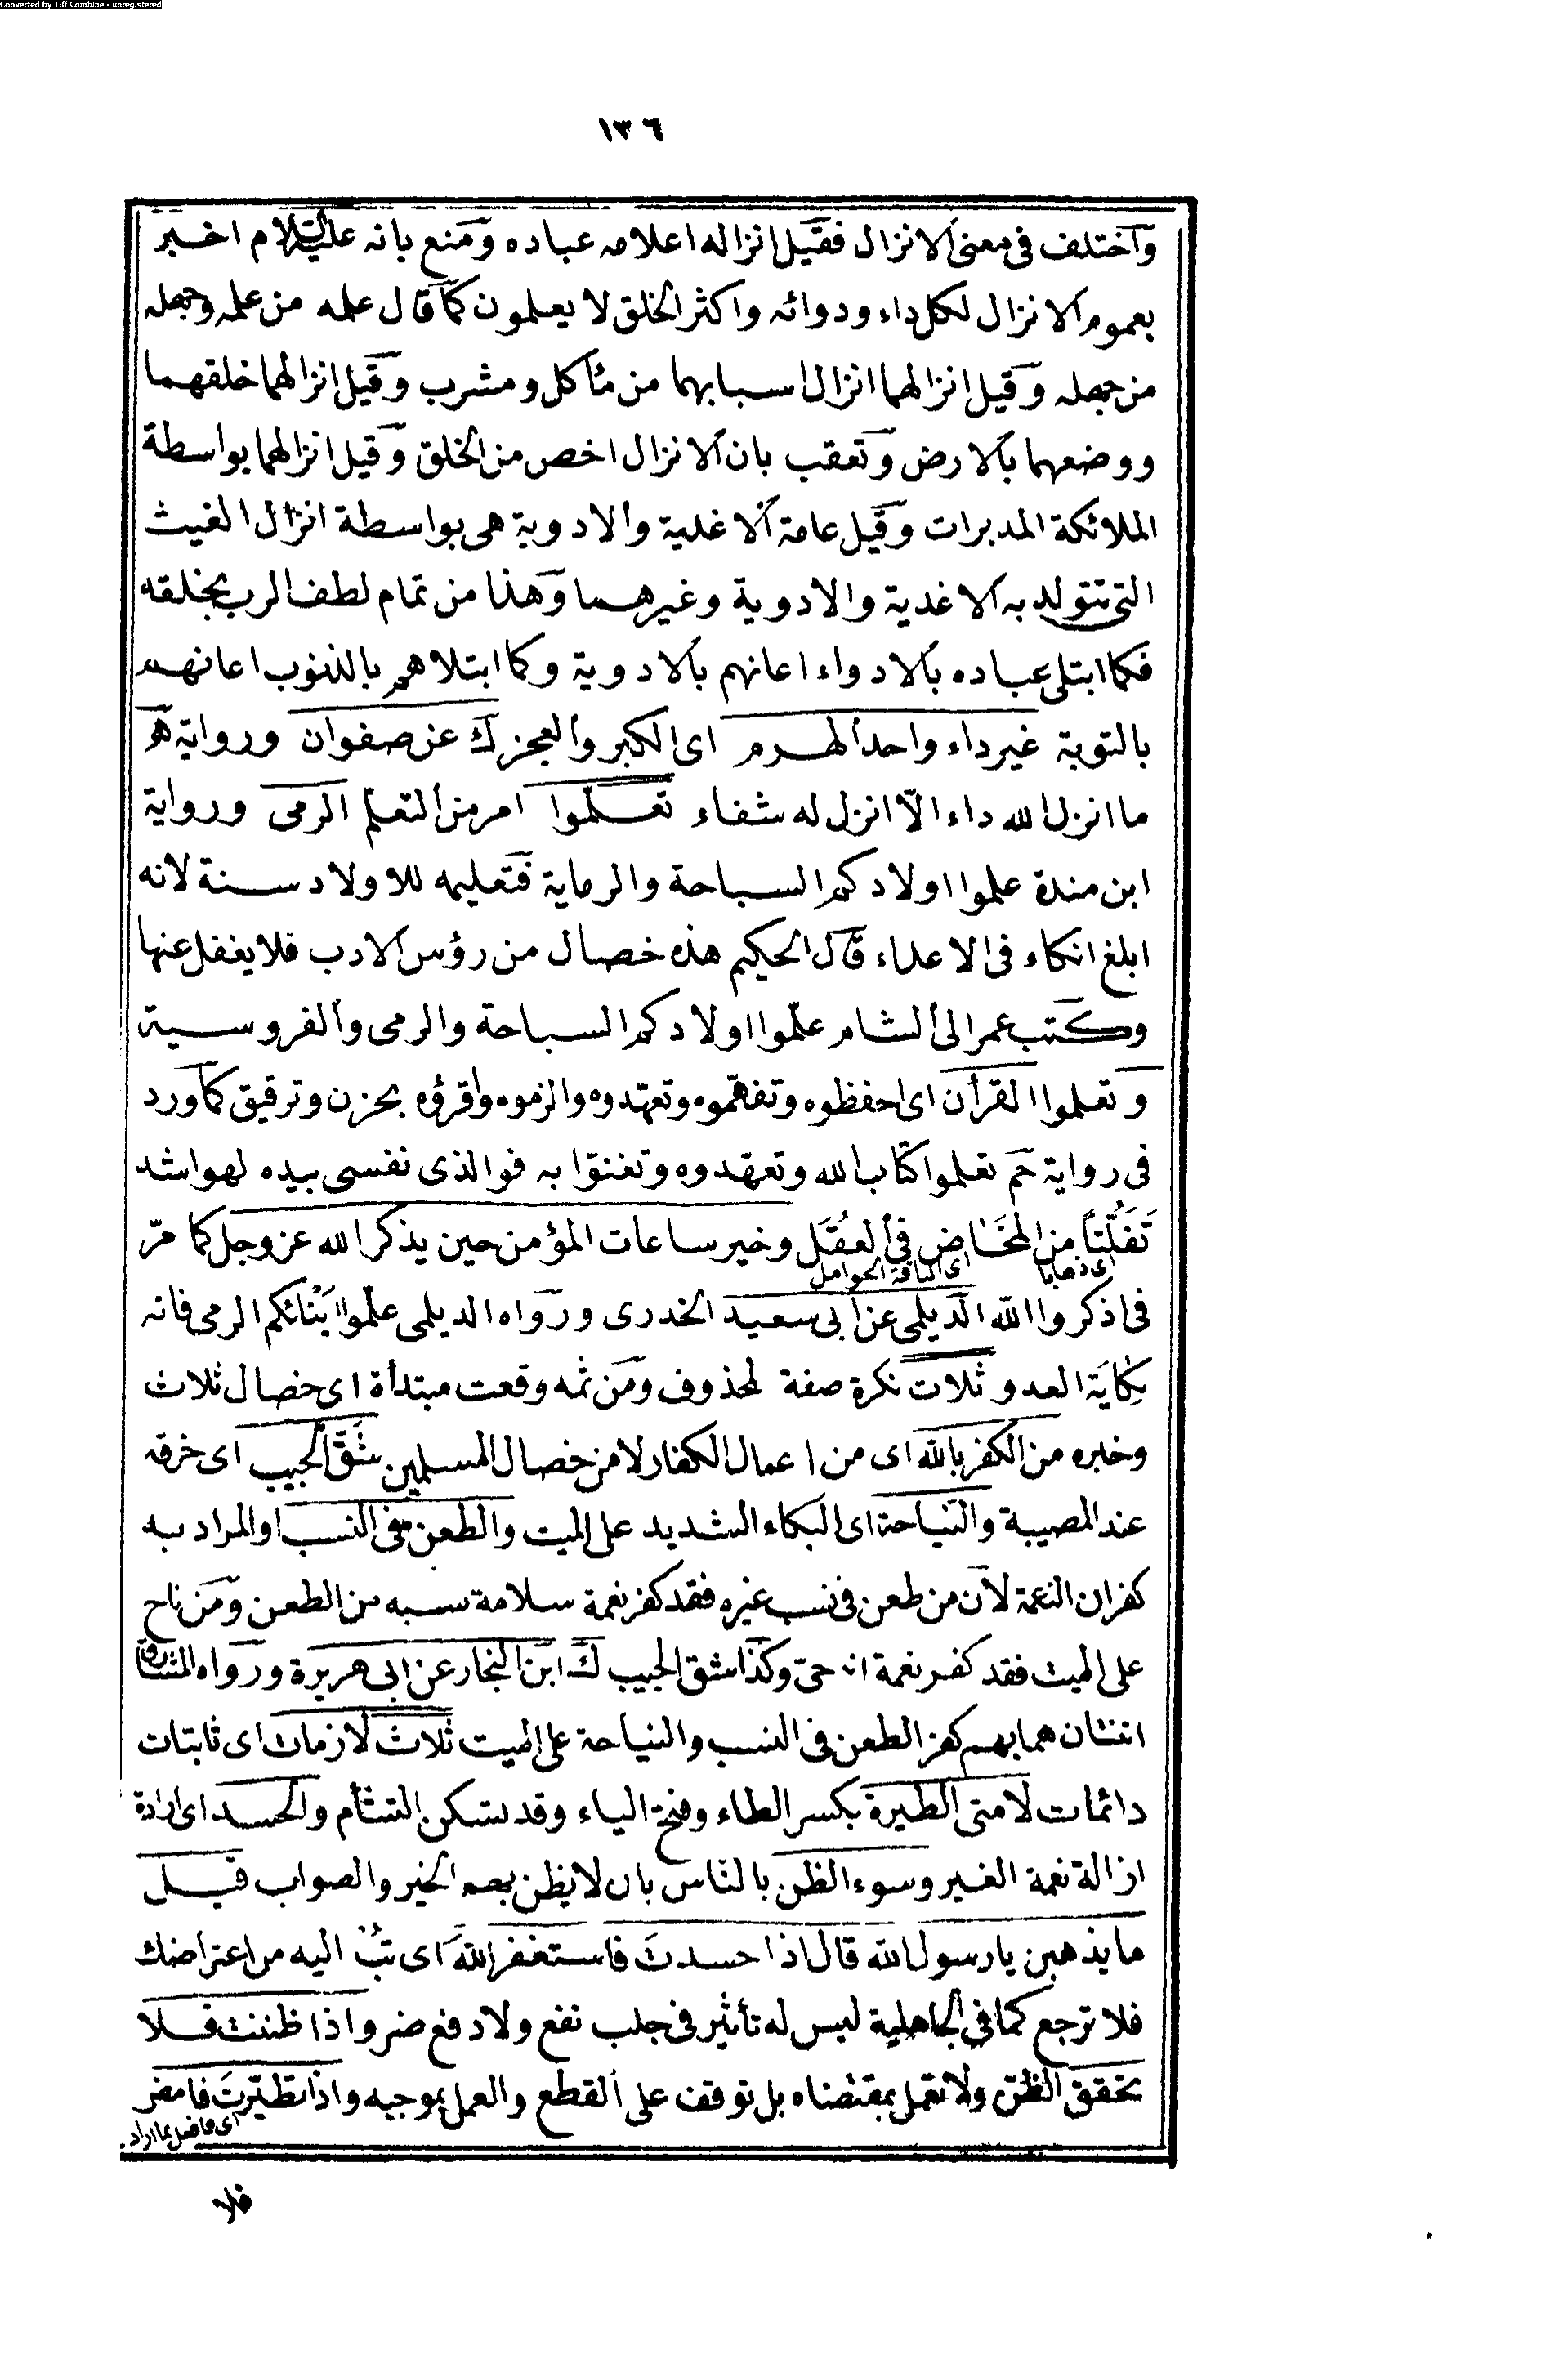 Converted by Tiff Combine - unregistered
١٣٦
واختلف فى معنى الانزال فقيل انزاله اعلامه عباده ومنع بانه عليه السلام اخبر
بعموم الانزال لكل داء ودوائه واكثر الخلق لا يعلمون كما قال علمه من علمه وجهله
من جهله وقيل انزالهما انزال اسبابهما من مأكل ومشرب وقيل انزالهما خلقهما
ووضعهما بالارض وتعقب بان الانزال اخص من الخلق وقيل انزالهما بواسطة
الملائكة المدبرات وقيل عامة الاغذية والادوية هى بواسطة انزال الغيث
التى تتولد به الاغدية والادوية وغيرهما وهذا من تمام لطف الرب بخلقه
فكما ابتلى عباده بالادواء اعانهم بالادوية وكما ابتلاهم بالذنوب اعانهم
بالتوبة غير داء واحد الهرم اى الكبر والعجز ك عن صفوان ورواية هو
ما انزل الله داء الّا انزل له شفاء تعلّموا امر من التعلم الرمى ورواية
ابن مندة علموا اولادكم السباحة والرماية فتعليمه للاولاد سنة لانه
ابلغ انكاء فى الاعداء قال الحكيم هذه خصال من رؤس الادب فلا يغفل عنها
وكتب عمر الى الشام علّموا اولادكم السباحة والرمى والفروسية
وتعلموا القرأن اى احفظوه وتفهّموه وتعهّدوه والزموه واقرؤه بحزن وترقيق كما ورد
فى رواية حم تعلموا كتاب الله وتعهدوه وتغنوا به فوالذى نفسى بيده لهو اشد
تَفَلُّتًا من المخَاض فى العُقَل وخير ساعات المؤمن حين يذكر الله عز وجل كما مرّ
اى ذهابا اى الناقة الحوامل
فى اذكروا الله الديلمى عن ابى سعيد الخدرى ورواه الديلمى علّموا ابنائكم الرمى فانه
نكاية العدو ثلاث نكرة صفة لمحذوف ومن ثمه وقعت مبتدأة اى خصال ثلاث
وخبره من الكفر بالله اى من اعمال الكفار لا من خصال المسلمين شَقّ الجيب اى خرقه
عند المصيبة والنياحة اى البكاء الشديد على الميت والطعن فى النسب او المراد به
كفران النعمة لان من طعن فى نسب غيره فقد كفر نعمة سلامة نسبه من الطعن ومن ناح
على الميت فقد كفر نعمة انه حىّ وكذا شق الجيب ك ابن النجار عن ابى هريرة ورواه المشارق
اثنتان هما بهم كفر الطعن فى النسب والنياحة على الميت ثلاث لازمات اى ثابتات
دائمات لامتى الطيرة بكسر الطاء وفتح الياء وقد تسكن التشأم والحسد اى ارادة
ازالة نعمة الغير وسوء الظن بالناس بان لا يظن بهم الخير والصواب قيل
ما يذهبن يا رسول الله قال اذا حسدت فاستغفر الله اى تُبْ اليه من اعتراضك
فلا ترجع كما فى الجاهلية ليس له تأثير فى جلب نفع ولا دفع ضر واذا ظننت فلا
تحقق الظن ولا تعمل بمقتضاه بل توقف على القطع والعمل بموجبه واذا تطيّرت فامض
اى فامض لما اراد
فلا